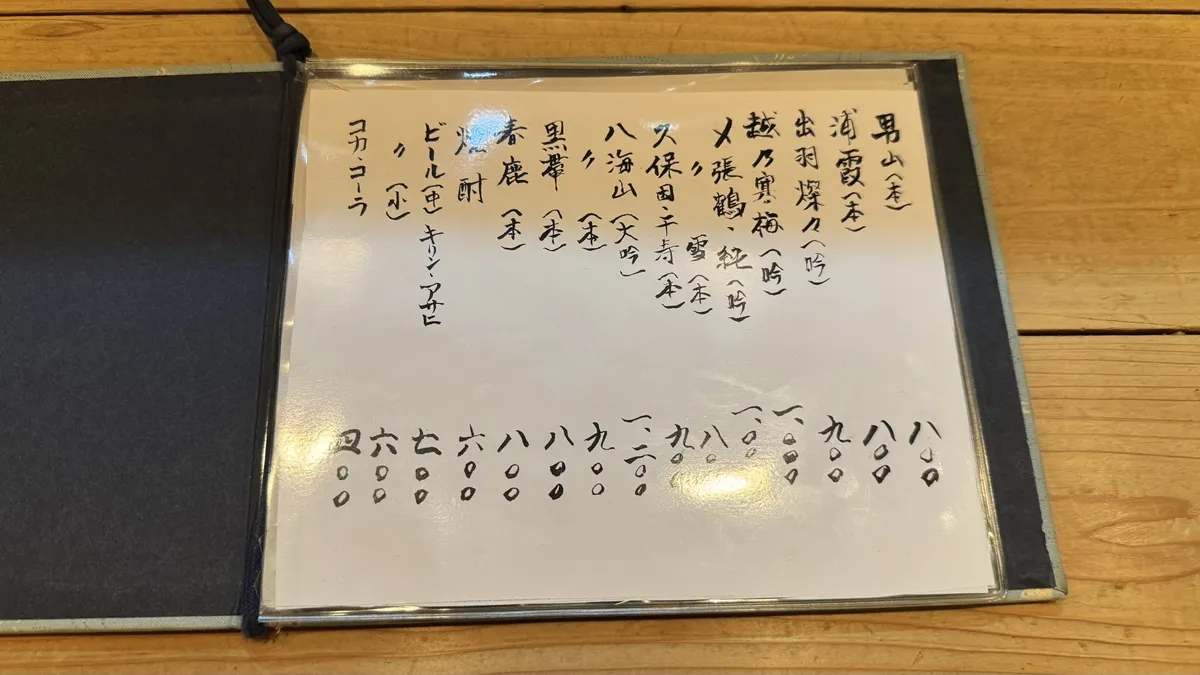 男山(本) 八〇〇
浦霞(本) 八〇〇
出羽燦々(吟) 九〇〇
越乃寒梅(吟) 一、〇〇〇
〆張鶴・純(吟) 一、〇〇〇
〃 雪(本) 八〇〇
久保田・千寿(本) 九〇〇
八海山(大吟) 一、二〇〇
〃 (本) 九〇〇
黒帯(本) 八〇〇
春鹿(本) 八〇〇
焼酎 六〇〇
ビール(中)キリン・アサヒ 七〇〇
〃 (小) 六〇〇
コカ・コーラ 四〇〇